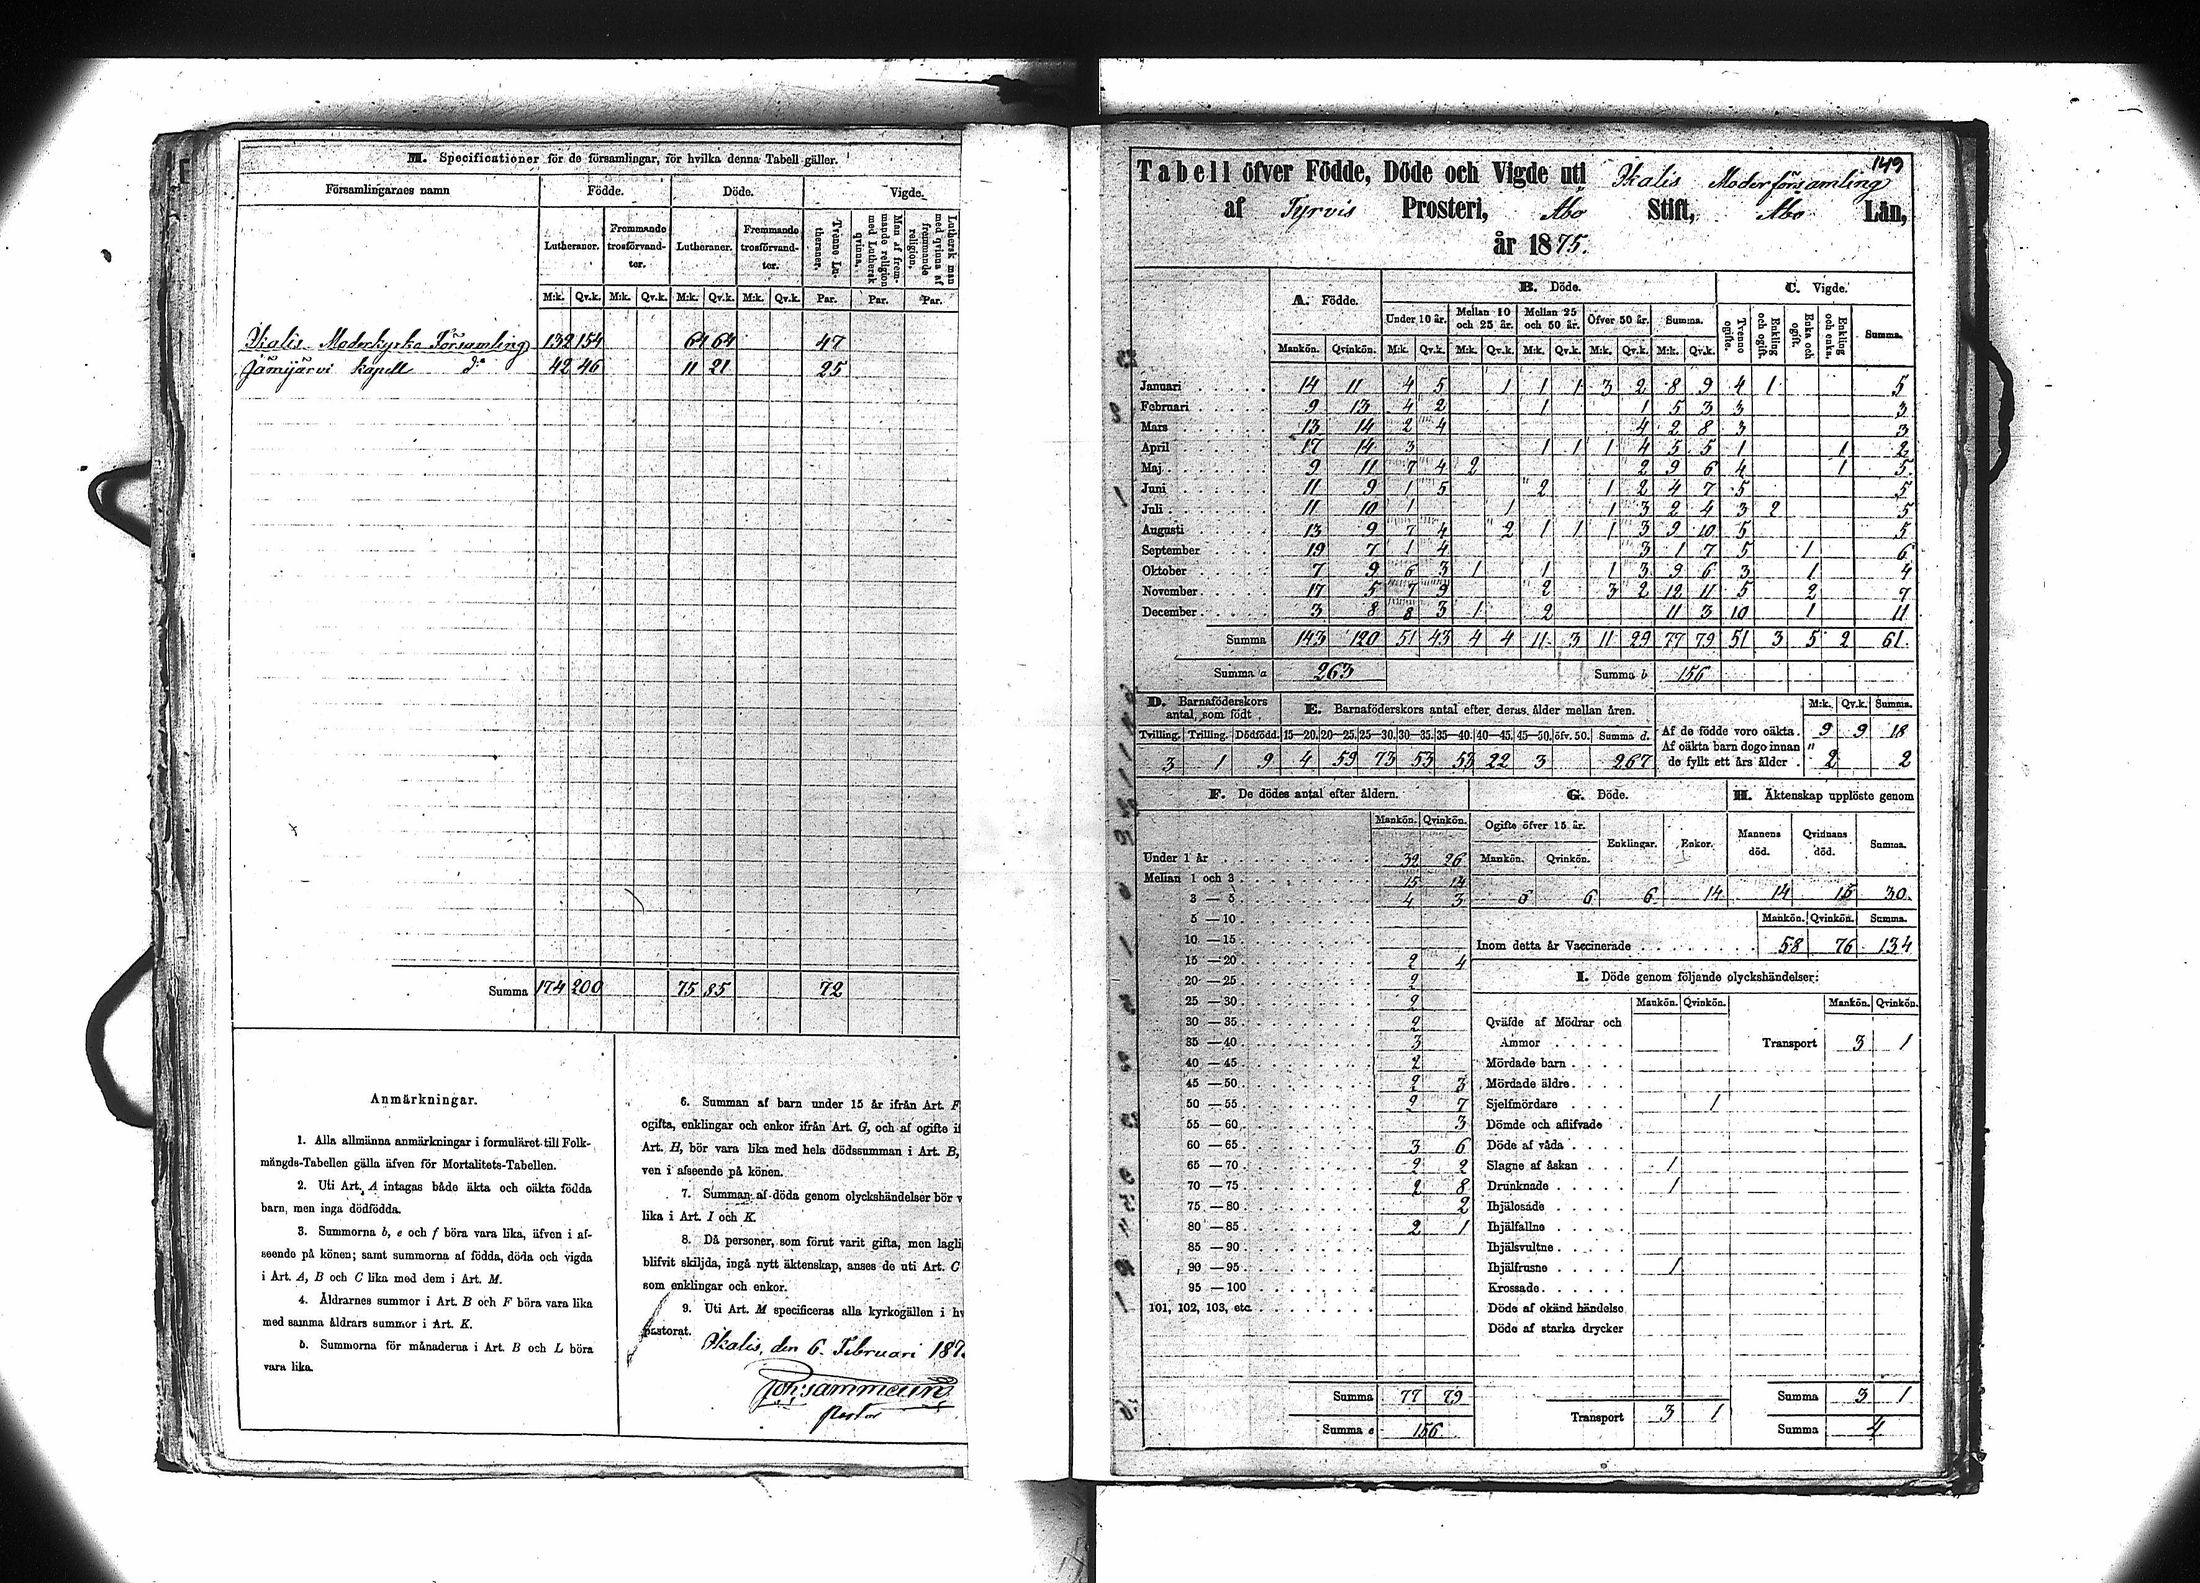 M. Specificationer för de församlingar, för hvilka denna Tabell gäller.
Församlingarnes namn Födde. Döde. Vigde.
Lutheraner. Fremmande trosförvandter. Lutheraner. Fremmande trosförvandter. Tvenne Lutheraner. Man af fremmande religion med Luthersk qvinna. Luthersk man med qvinna af fremmande religion.
M:k. Qv.k. M:k. Qv.k. M:k. Qv.k. M:k. Qv.k. Par. Par. Par.
Ikalis Moderkyrko Församling 132 154 64 64 47
Jämijärvi kapell d:o 42 46 11 21 25
Summa 174 200 75 85 72
Anmärkningar.
1. Alla allmänna anmärkningar i formuläret till Folk-
mängds-Tabellen gälla äfven för Mortalitets-Tabellen.
2. Uti Art. A intagas både äkta och oäkta födda
barn, men inga dödfödda.
3. Summorna b, e och f böra vara lika, äfven i af-
seende på könen; samt summorna af födda, döda och vigda
i Art. A, B och C lika med dem i Art. M.
4. Åldrarnes summor i Art. B och F böra vara lika
med samma åldrars summor i Art. K.
5. Summorna för månaderna i Art. B och L böra
vara lika.
6. Summan af barn under 15 år ifrån Art. F
ogifta, enklingar och enkor ifrån Art. G, och af ogifte
Art. H, bör vara lika med hela dödssumman i Art. B,
ven i afseende på könen.
7. Summan af döda genom olyckshändelser bör
lika i Art. I och K.
8. Då personer, som förut varit gifta, men lagli
blifvit skiljda, ingå nytt äktenskap, anses de uti Art. C
som enklingar och enkor.
9. Uti Art. M specificeras alla kyrkogällen i
pastorat.
Ikalis, den 6. Februari 187
Pastor
149
Tabell öfver Födde, Döde och Vigde uti Ikalis Moderförsamling
af Tyrvis Prosteri, Åbo Stift, Åbo Län,
år 1875.
A. Födde. B. Döde. C. Vigde.
Under 10 år. Mellan 10 och 25 år. Mellan 25 och 50 år. Öfver 50 år. Summa. Tvenne ogifte. Enkling och ogift. Enka och ogift. Enkling och enka. Summa.
Mankön. Qvinkön. M:k. Qv.k. M:k. Qv.k. M:k. Qv.k. M:k. Qv.k. M:k. Qv.k.
Januari 14 11 4 5 1 1 1 3 2 8 9 4 1 5
Februari 9 13 4 2 1 1 5 3 3 3
Mars 13 14 2 4 4 2 8 3 3
April 17 14 3 1 1 1 4 5 5 1 1 2
Maj 9 11 7 4 2 2 9 6 4 1 5
Juni 11 9 1 5 2 1 2 4 7 5 5
Juli 11 10 1 1 1 3 2 4 3 2 5
Augusti 13 9 7 4 2 1 1 1 3 9 10 5 5
September 19 7 1 4 3 1 7 5 1 6
Oktober 7 9 6 3 1 1 1 3 9 6 3 1 4
November 17 5 7 9 2 3 2 12 11 5 2 7
December 3 8 8 3 1 2 11 3 10 1 11
Summa 143 120 51 43 4 4 11 3 11 29 77 79 51 3 5 2 61
Summa a 263 Summa b 156
D. Barnaföderskors antal, som födt E. Barnaföderskors antal efter deras ålder mellan åren. M:k. Qv.k. Summa.
Tvilling. Trilling. Dödfödd. 15—20. 20—25. 25—30. 30—35. 35—40. 40—45. 45—50. öfv. 50. Summa d.
3 1 9 4 59 73 53 53 22 3 267
Af de födde voro oäkta 9 9 18
Af oäkta barn dogo innan
de fyllt ett års ålder 2 2
F. De dödes antal efter åldern.
Mankön. Qvinkön.
Under 1 år 32 26
Mellan 1 och 3 15 14
3 — 5 4 3
5 — 10
10 — 15
15 — 20 2 4
20 — 25 2
25 — 30 2
30 — 35 2
35 — 40 3
40 — 45 2
45 — 50 2 3
50 — 55 2 7
55 — 60 3
60 — 65 3 6
65 — 70 2 2
70 — 75 2 8
75 — 80 2
80 — 85 2 1
85 — 90
90 — 95
95 — 100
101, 102, 103, etc.
Summa 77 79
Summa e 156
G. Döde. H. Äktenskap upplöste genom
Ogifte öfver 15 år. Enklingar. Enkor. Mannens död. Qvinnans död. Summa.
Mankön. Qvinkön.
6 6 6 14 14 15 30
Mankön. Qvinkön. Summa.
Inom detta år Vaccinerade 58 76 134
I. Döde genom följande olyckshändelser:
Mankön. Qvinkön. Mankön. Qvinkön.
Qväfde af Mödrar och
Ammor Transport 3 1
Mördade barn
Mördade äldre
Sjelfmördare 1
Dömde och aflifvade
Döde af våda
Slagne af åskan 1
Drunknade 1
Ihjälosade
Ihjälfallne
Ihjälsvultne
Ihjälfrusne 1
Krossade
Döde af okänd händelse
Döde af starka drycker
Transport 3 1
Summa 3 1
Summa 4